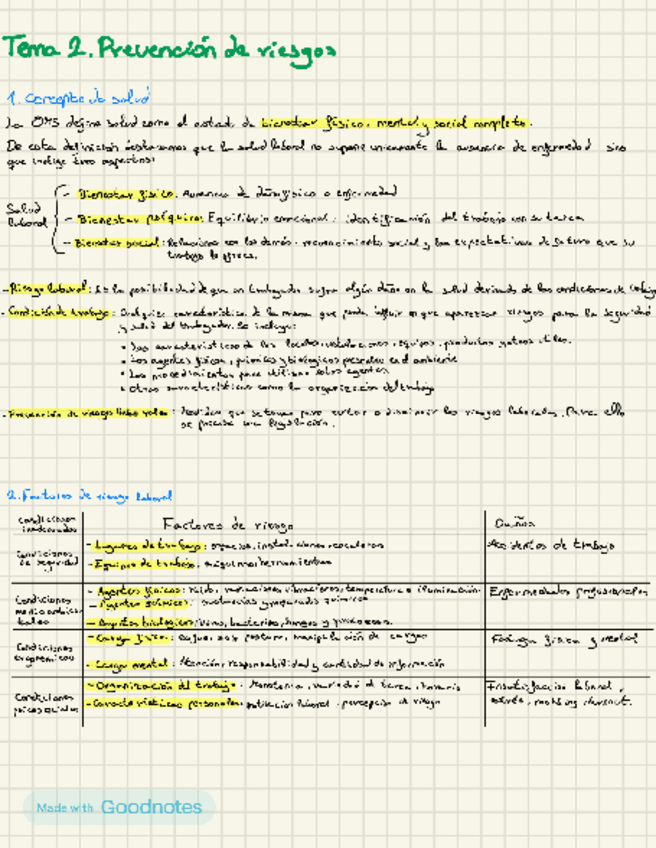 Tema 2. Prevención de riesgos
1. Concepto de salud
La OMS define salud como el estado de bienestar físico, mental y social completo.
De esta definición destacamos que la salud laboral no supone unicamente la ausencia de enfermedad sino
que incluye tres aspectos:
Salud laboral
- Bienestar físico: Ausencia de daño físico o enfermedad
- Bienestar psíquico: Equilibrio emocional: identificación del trabajo con su tarea
- Bienestar social: Relaciones con los demás, reconocimiento social y las expectativas de futuro que su
trabajo le ofrece.
- Riesgo laboral: Es la posibilidad de que un trabajador sufra algún daño en la salud derivado de las condiciones de
- Condición de trabajo: Cualquier característica de la misma que pueda influir en que aparezcan riesgos para la seguridad
y salud del trabajador. Se incluye:
• Las características de los locales, instalaciones, equipos, productos y otros útiles.
• Los agentes físicos, químicos y biológicos presentes en el ambiente
• Los procedimientos para utilizar estos agentes
• Otras características como la organización del trabajo
- Prevención de riesgos laborales: Medidas que se toman para evitar o disminuir los riesgos laborales. Para ello
se precisa una legislación.
2. Factores de riesgo laboral
Condiciones inadecuadas
Factores de riesgo
Daños
Condiciones de seguridad
- Lugares de trabajo: espacios, instalaciones, escaleras
- Equipos de trabajo: máquinas, herramientas
Accidentes de trabajo
Condiciones medio ambientales
- Agentes físicos: ruido, radiaciones, vibraciones, temperatura o iluminación
- Agentes químicos: sustancias y preparados químicos
- Agentes biológicos: virus, bacterias, hongos y protozoos.
Enfermedades profesionales
Condiciones ergonómicas
- Carga física: postura, manipulación de cargas
- Carga mental: Atención, responsabilidad y cantidad de información
Fatiga física y mental
Condiciones psicosociales
- Organización del trabajo: Monotonía, variedad de tarea, horario
- Características personales: motivación laboral, percepción de riesgo
Insatisfacción laboral,
estrés, mobbing, burnout.
Made with Goodnotes